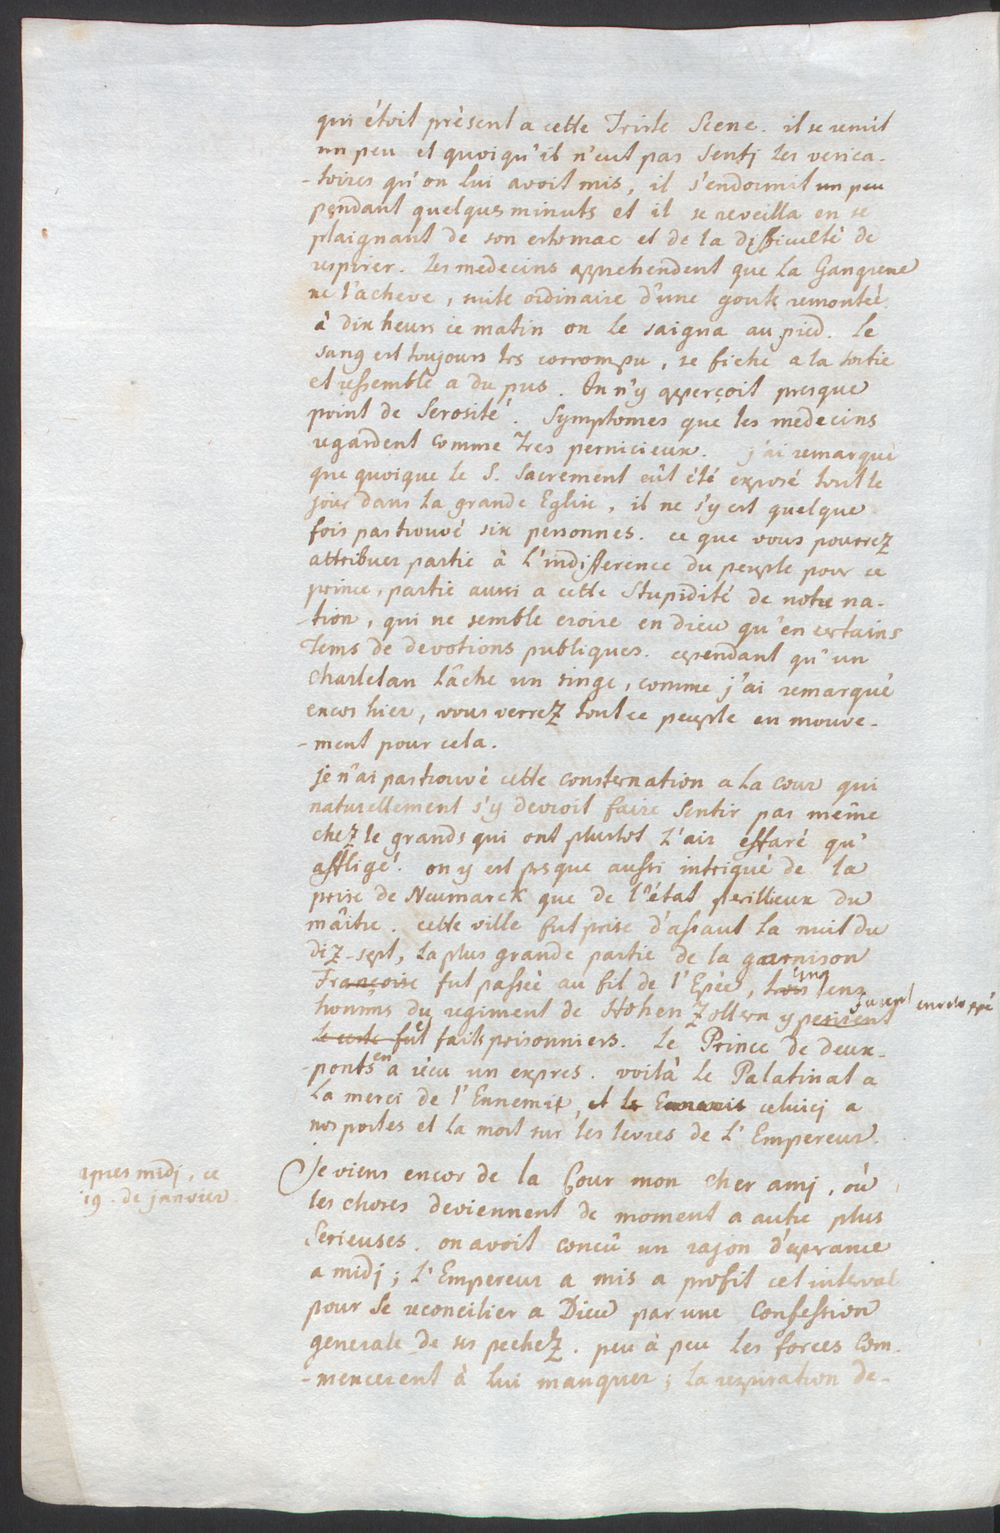 qui étoit présent a cette Triste Scene. il se remit
un peu et quoiqu'il n'eut pas Sentj les vesica-
-toires qu'on lui avoit mis, il s'endormit un peu
pendant quelques minuts et il se reveilla en se
plaignant de son estomac et de la difficulté de
respirer. Les medecins apprehendent que la Gangrene
ne l'acheve, suite ordinaire d'une goute remontée.
à dix heurs ce matin on le saigna au pied. le
sang est toujours trs corrompu, se fiche a la sortie
et ressemble a du pus. On n'y apperçoit presque
point de Serosité. Symptomes que les medecins
regardent comme tres pernicieux. j'ai remarqué
que quoique le S. Sacrement eût été exposé tout le
jour dans la grande Eglise, il ne s'y est quelque
fois pas trouvé six personnes. ce que vous pourrez
attribuer partie à l'indifference du peuple pour ce
prince, partie aussi a cette Stupidité de notre na-
-tion, qui ne semble croire en dieu qu'en certains
Tems de devotions publiques. cependant qu'un
charletan lâche un singe, comme j'ai remarqué
encor hier, vous verrez tout ce peuple en mouve-
-ment pour cela.
je n'ai pas trouvé cette consternation a la cour qui
naturellement s'y devroit faire Sentir pas même
chez le grands qui ont plustot l'air effaré qu'
affligé. on y est prsque aussi intrigué de la
prise de Neumarck que de l'état perillieux du
mâitre. cette ville fut prise d'assaut la nuit du
diz-sept, la plus grande partie de la garnison
Françoise fut passée au fil de l'Epée, trois cinq cens
homms du regiment de Hohen Zollern y perirent furent enveloppé
le reste fut et faits prisonniers. Le Prince de deux-
-ponts en a récu un expres. voilà le Palatinat a
la merci de l'Ennemit, et le celuicj a
nos portes et la mort sur les levres de l'Empereur.
apres midj, ce
19. de janvier
Je viens encor de la Cour mon cher amj, où
les choses deviennent de moment a autre plus
Serieuses. on avoit concû un rajon d'esperance
a midj; l'Empereur a mis a profit cet interval
pour se reconcilier a Dieu par une Confession
generale de ses pechez. peu à peu les forces com-
-mencerent à lui manquer; la respiration de-